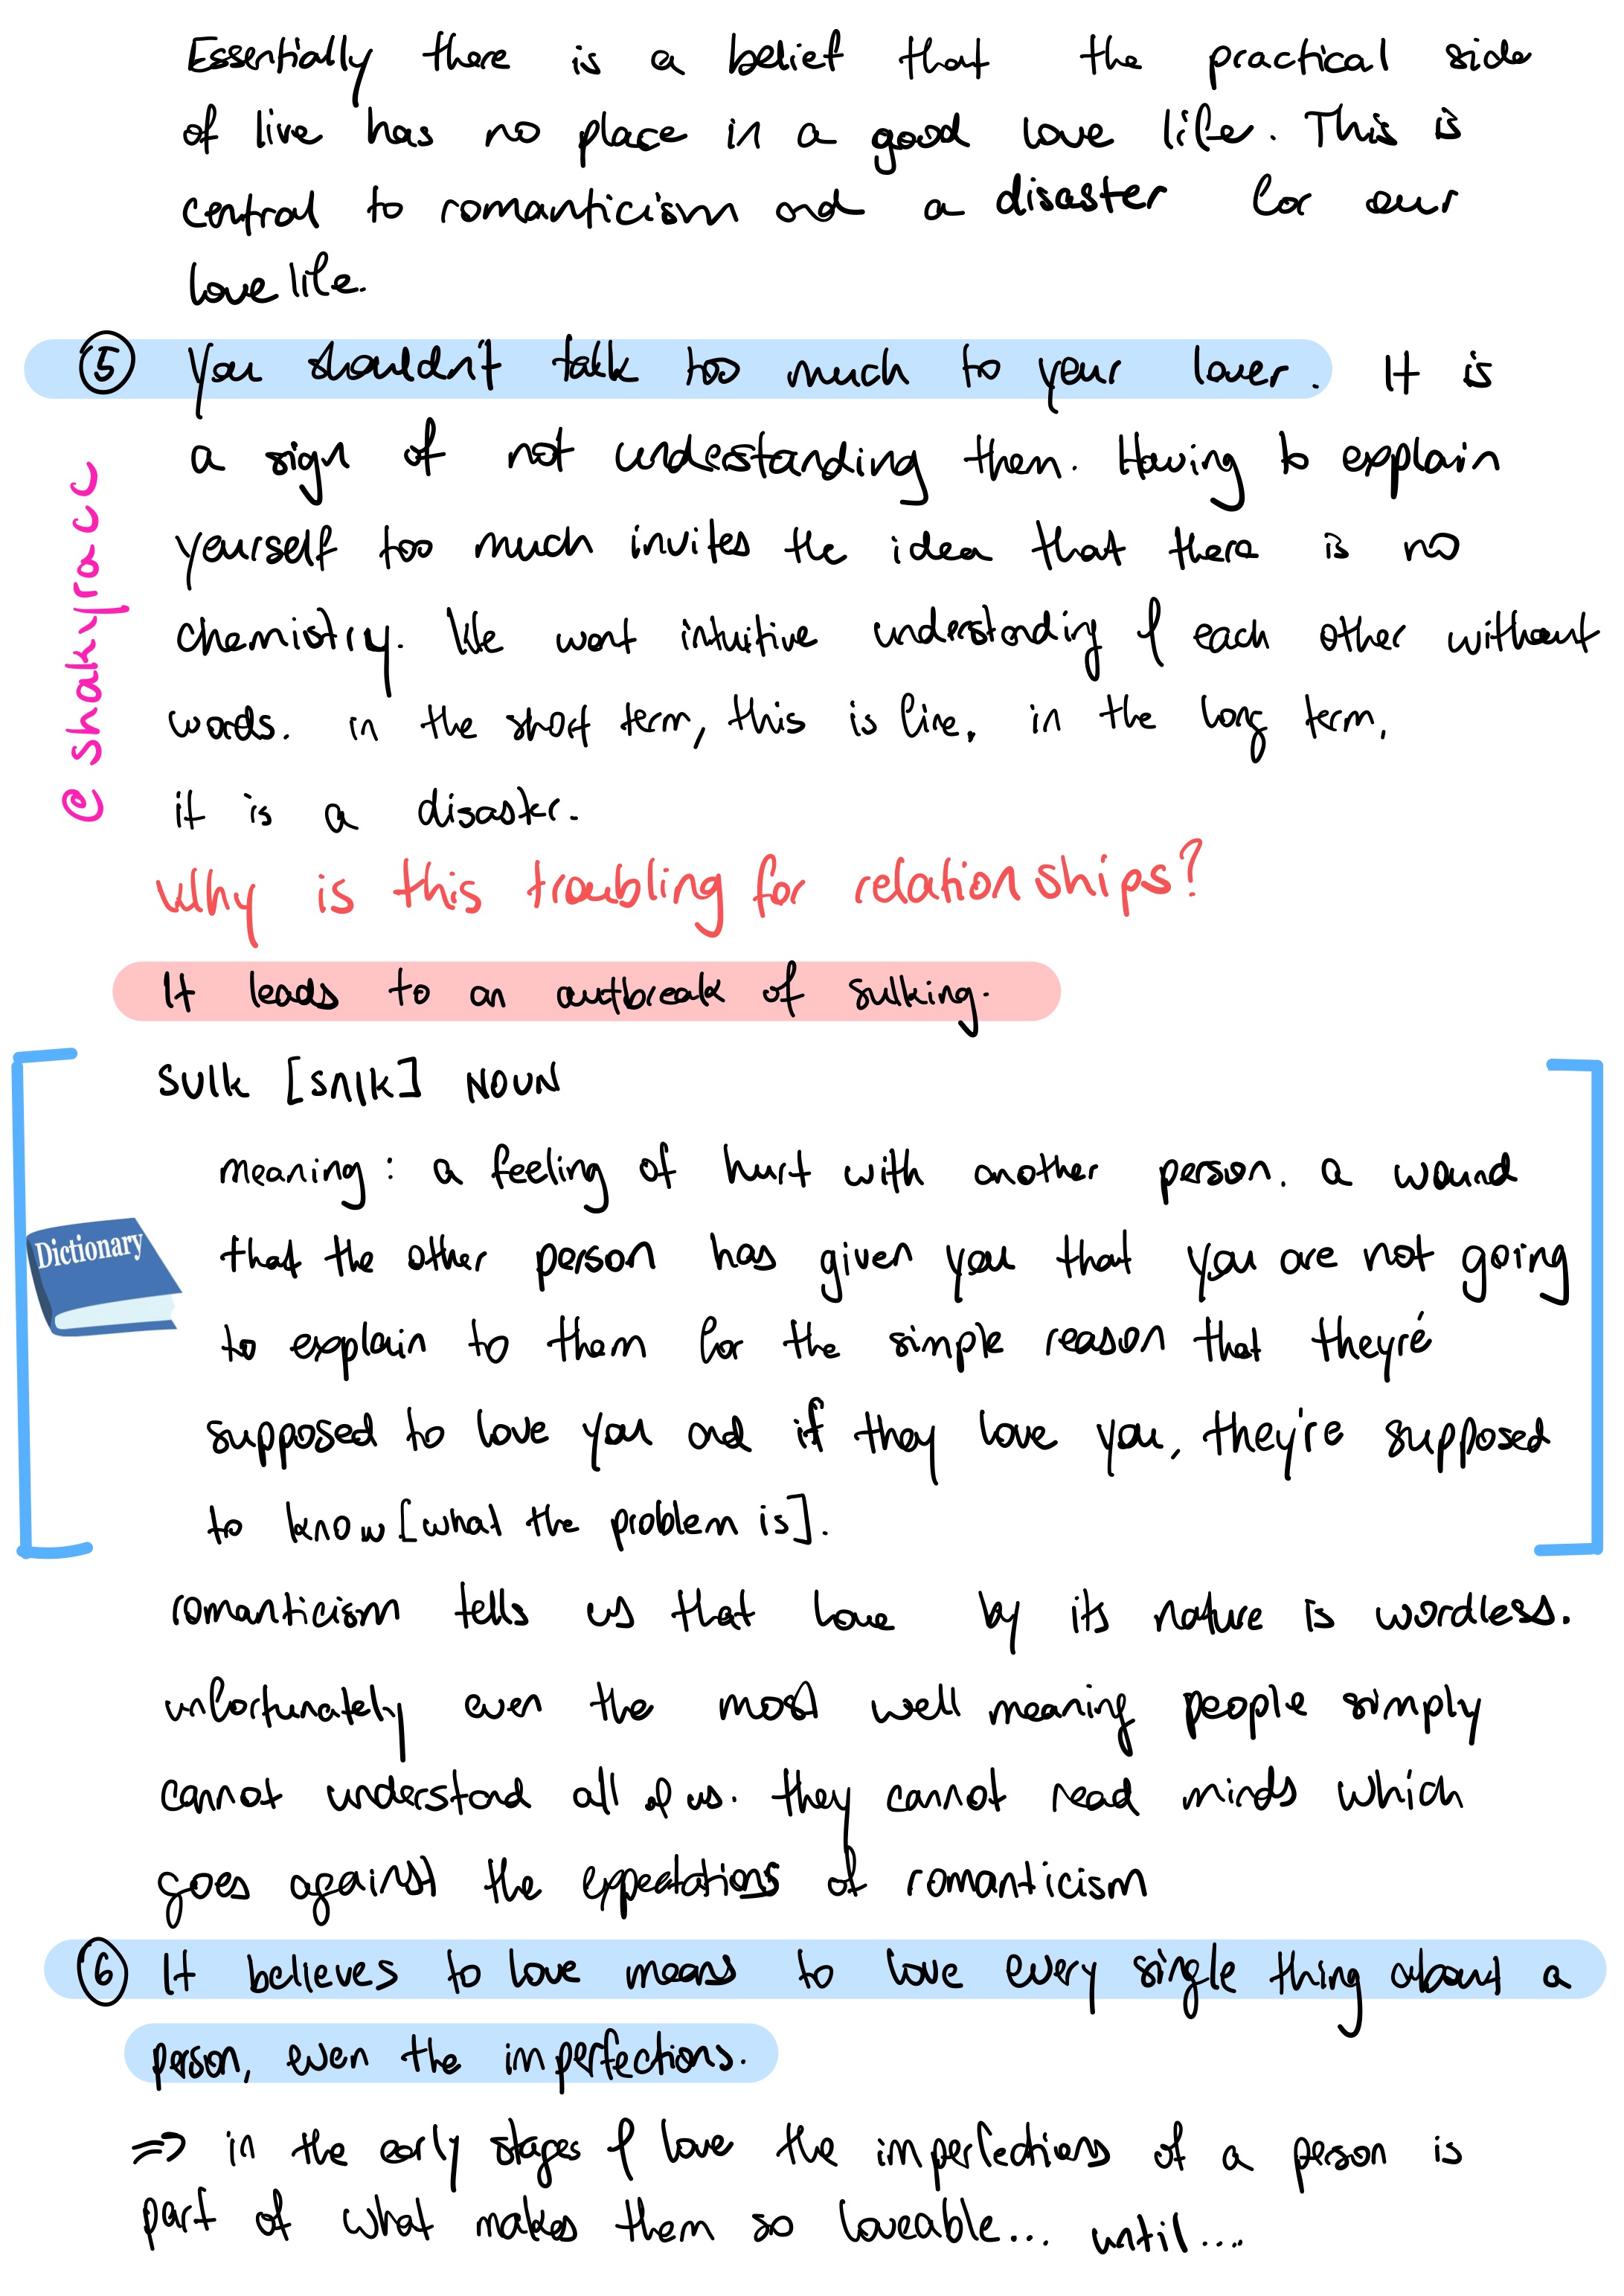 Essentially there is a belief that the practical side
of live has no place in a good love life. This is
central to romanticism and a disaster for our
love life.
⑤ You shouldn't talk too much to your lover. It is
a sign of not understanding them. Having to explain
yourself too much invites the idea that there is no
chemistry. We want intuitive understanding of each other without
words. in the short term, this is fine. in the long term,
it is a disaster.
@shakyracc
Why is this troubling for relationships?
It leads to an outbreak of sulking.
SULK [sʌlk] NOUN
meaning: a feeling of hurt with another person. a wound
that the other person has given you that you are not going
Dictionary
to explain to them for the simple reason that they're
supposed to love you and if they love you, they're supposed
to know [what the problem is].
romanticism tells us that love by its nature is wordless.
unfortunately even the most well meaning people simply
cannot understand all of us. they cannot read minds which
goes against the expectations of romanticism
⑥ It believes to love means to love every single thing about a
person, even the imperfections.
⇒ in the early stages of love the imperfections of a person is
part of what makes them so loveable... until....